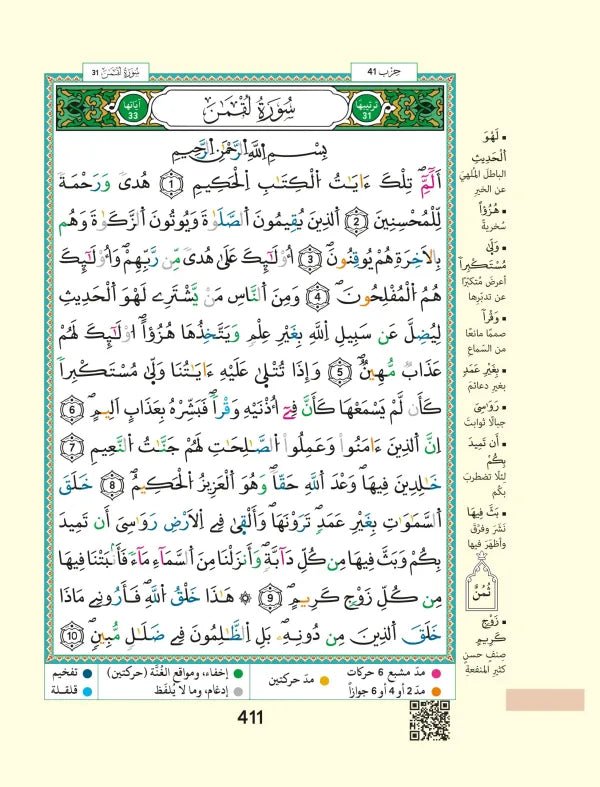 حِزْب 41
سُورَةُ لُقْمَٰنَ 31
ترتيبها 31
سُورَةُ لُقْمَٰنَ
آياتها 33
بِسْمِ اِللَّهِ اِلرَّحْمَٰنِ اِلرَّحِيمِ
أَلَٓمِّٓۖ تِلْكَ ءَايَٰتُ اُلْكِتَٰبِ اِلْحَكِيمِ 1 هُدىٗ وَرَحْمَةٗ
لِّلْمُحْسِنِينَ 2 اَلذِينَ يُقِيمُونَ اَلصَّلَوٰةَ وَيُوتُونَ اَلزَّكَوٰةَ وَهُم
بِالَاخِرَةِ هُمْ يُوقِنُونَۖ 3 أُوْلَٰٓئِكَ عَلَىٰ هُدىٗ مِّن رَّبِّهِمْۖ وَأُوْلَٰٓئِكَ
هُمُ اُلْمُفْلِحُونَۖ 4 وَمِنَ اَلنَّاسِ مَنْ يَّشْتَرِے لَهْوَ اَلْحَدِيثِ
لِيُضِلَّ عَن سَبِيلِ اِللَّهِ بِغَيْرِ عِلْمٖ وَيَتَّخِذُهَا هُزُؤاًۖ اُوْلَٰٓئِكَ لَهُمْ
عَذَابٞ مُّهِينٞۖ 5 وَإِذَا تُتْلَىٰ عَلَيْهِ ءَايَٰتُنَا وَلَّىٰ مُسْتَكْبِراٗ
كَأَن لَّمْ يَسْمَعْهَا كَأَنَّ فِےٓ أُذْنَيْهِ وَقْراٗۖ فَبَشِّرْهُ بِعَذَابٍ اَلِيمٍۖ 6
اِنَّ اَلذِينَ ءَامَنُواْ وَعَمِلُواْ اُلصَّٰلِحَٰتِ لَهُمْ جَنَّٰتُ اُلنَّعِيمِ 7
خَٰلِدِينَ فِيهَا وَعْدَ اَللَّهِ حَقّاٗۖ وَهُوَ اَلْعَزِيزُ اُلْحَكِيمُۖ 8 خَلَقَ
اَلسَّمَٰوَٰتِ بِغَيْرِ عَمَدٖ تَرَوْنَهَاۖ وَأَلْقَىٰ فِے اِلَارْضِ رَوَٰسِيَ أَن تَمِيدَ
بِكُمْ وَبَثَّ فِيهَا مِن كُلِّ دَآبَّةٖۖ وَأَنزَلْنَا مِنَ اَلسَّمَآءِ مَآءٗ فَأَنۢبَتْنَا فِيهَا
مِن كُلِّ زَوْجٖ كَرِيمٍۖ 9 ۞ هَٰذَا خَلْقُ اُللَّهِۖ فَأَرُونِے مَاذَا
خَلَقَ اَلذِينَ مِن دُونِهِۦۖ بَلِ اِلظَّٰلِمُونَ فِے ضَلَٰلٖ مُّبِينٖۖ 10
▪ لَهْوَ
اَلْحَدِيثِ
الباطلَ المُلهِيَ
عن الخيرِ
▪ هُزُؤاً
سُخريةً
▪ وَلَّىٰ
مُسْتَكْبِراٗ
أعرضَ مُتكبّرًا
عن تدبّرِها
▪ وَقْراٗ
صممًا مانعًا
من السّماعِ
▪ بِغَيْرِ عَمَدٖ
بغيرِ دعائمَ
▪ رَوَٰسِيَ
جبالًا ثوابتَ
▪ أَن تَمِيدَ
بِكُمْ
لِئلّا تضطربَ
بكُم
▪ بَثَّ فِيهَا
نَشَرَ وفرّقَ
وأظهرَ فيها
ثُمُنٌ
▪ زَوْجٖ
كَرِيمٍ
صِنفٍ حسنٍ
كثيرِ المنفعةِ
مدّ مشبع 6 حركات
مدّ حركتين
إخفاء، ومواقع الغُنَّة (حركتين)
تفخيم
مدّ 2 أو 4 أو 6 جوازاً
إدغام، وما لا يُلفَظ
قلقلة
411